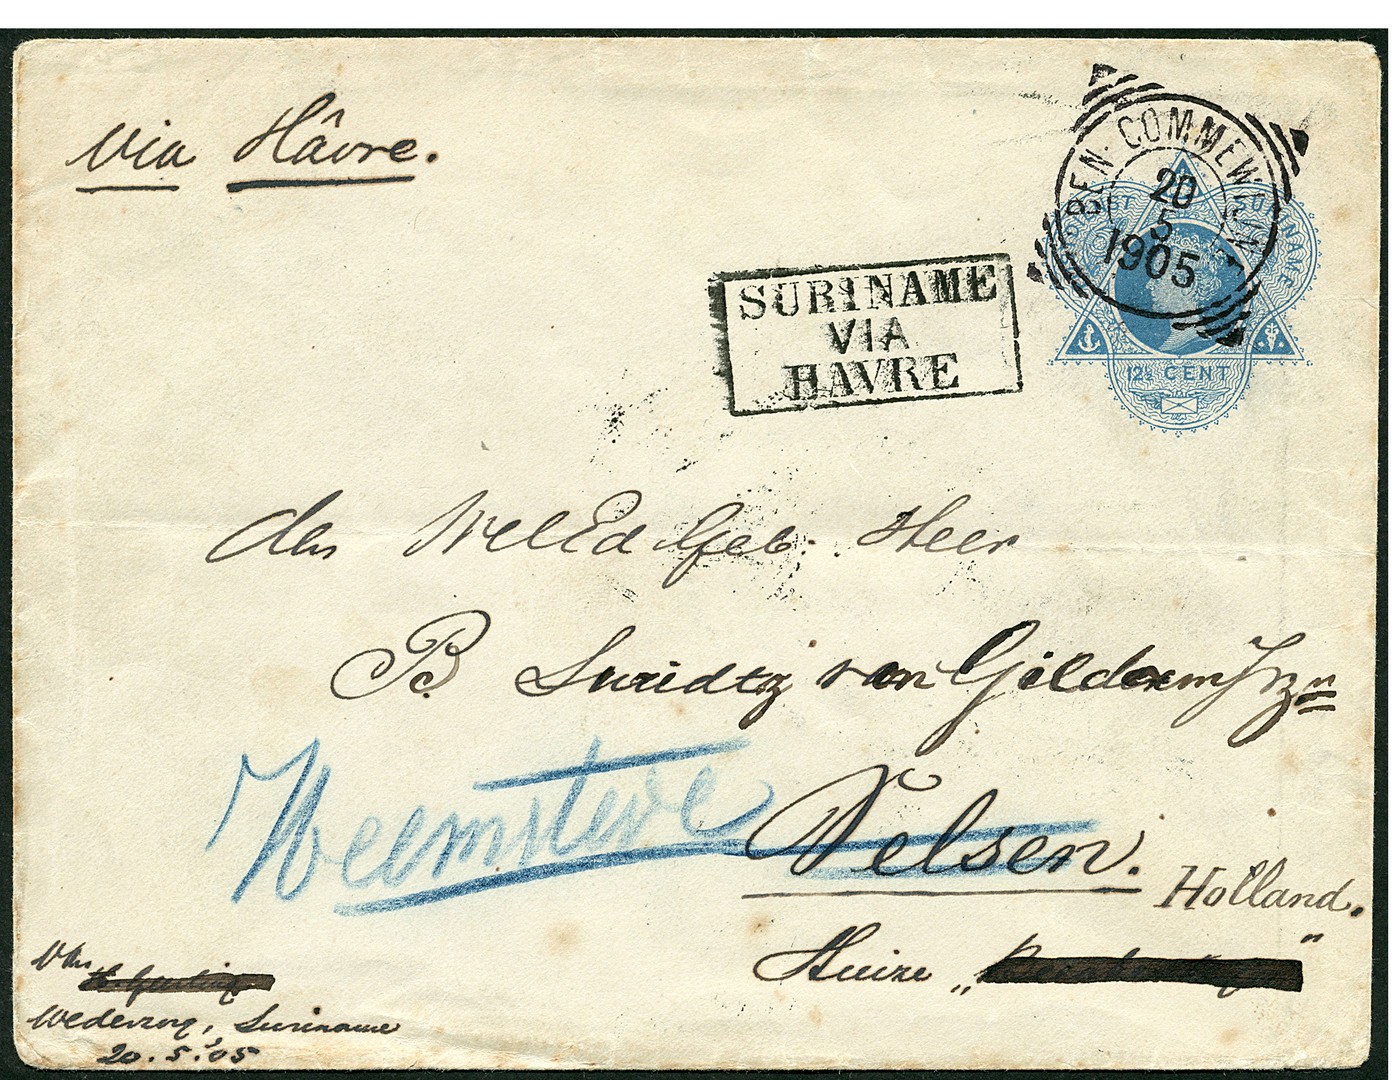 via Hâvre.
BEN. COMMEWIJNE
20
5
1905
SURINAME
VIA
HAVRE
SURINAME
12½ CENT
den WelEd Geb. Heer
B. Suridtz van Gilderen Jrzn
Heemstede
Velsen.
Holland.
Huize „ "
Van
Wederzorg, Suriname
20.5.'05